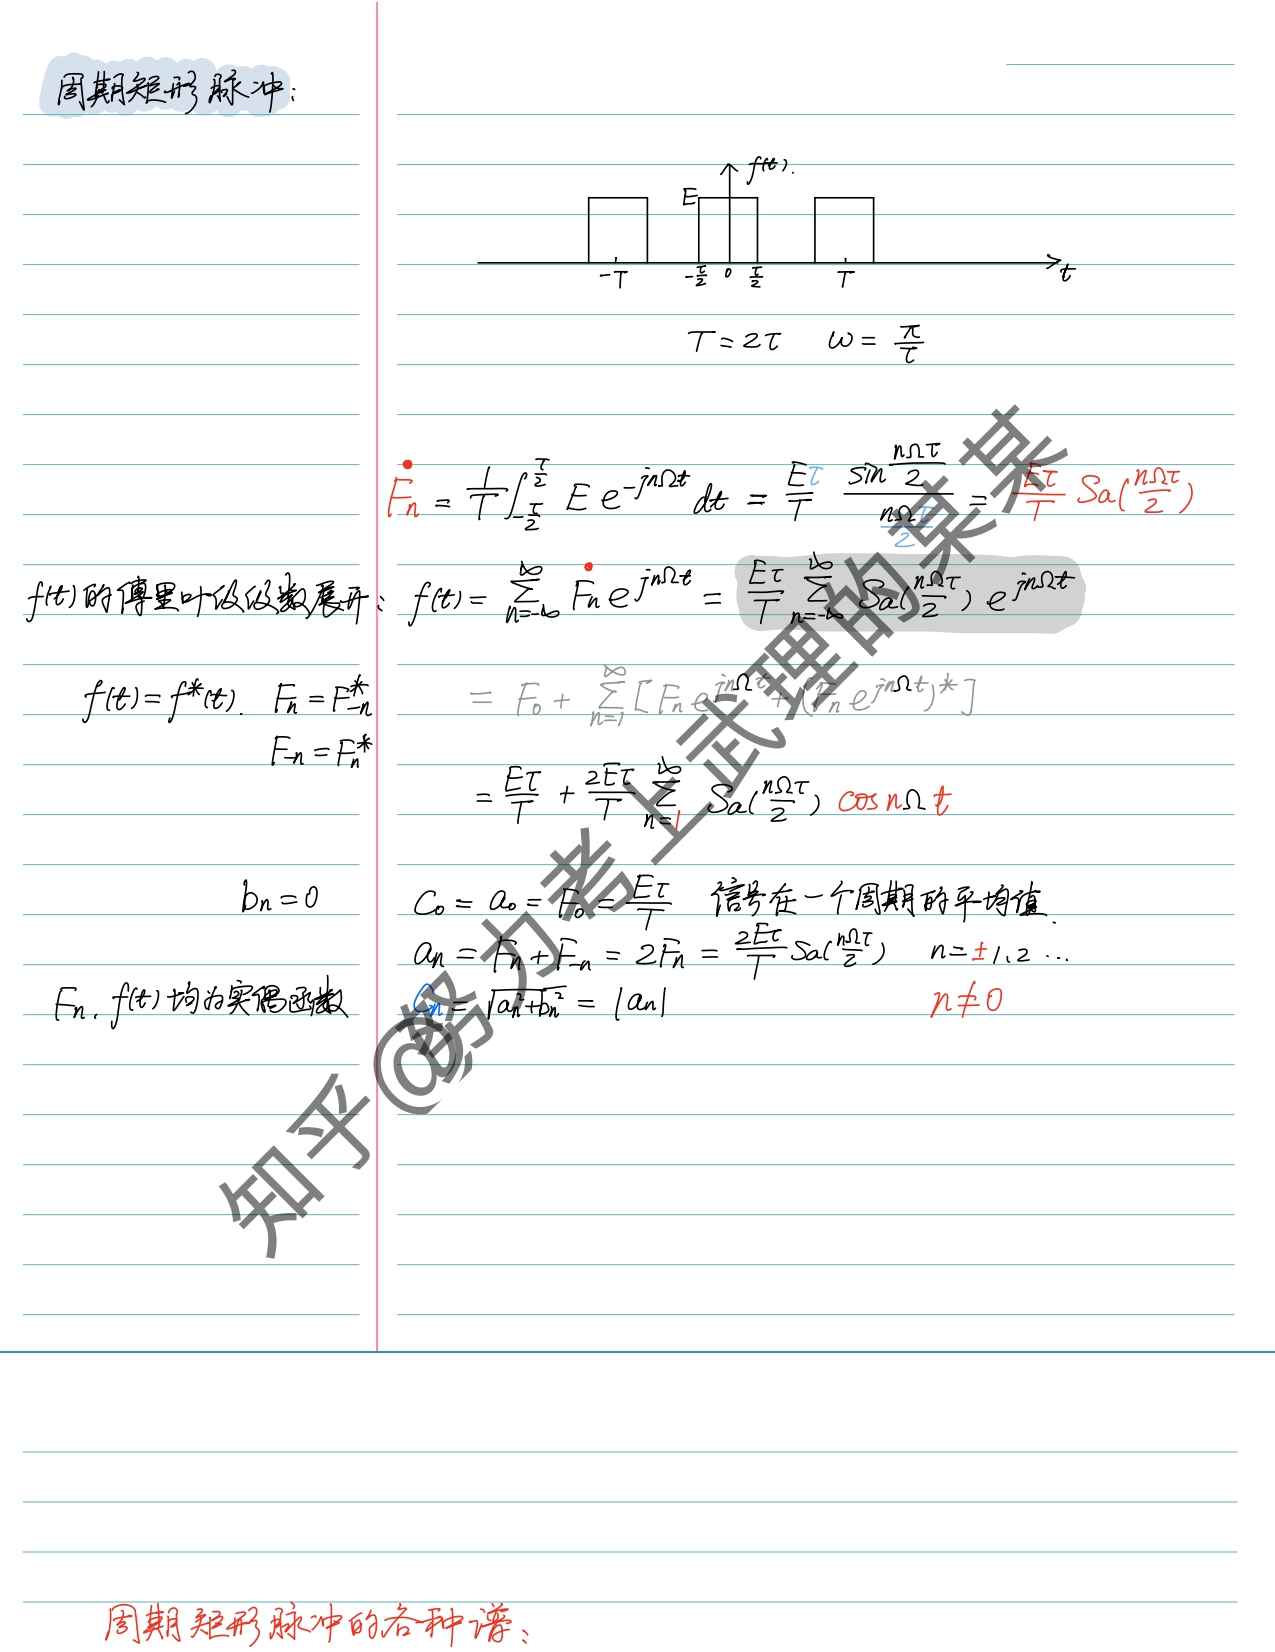 周期矩形脉冲:
f(t).
E
-T -τ/2 0 τ/2 T t
T = 2τ ω = π/τ
Ḟn = 1/T ∫_{-τ/2}^{τ/2} E e^{-jnΩt} dt = Eτ/T · (sin nΩτ/2)/(nΩτ/2) = Eτ/T Sa(nΩτ/2)
f(t)的傅里叶级级数展开: f(t) = ∑_{n=-∞}^{∞} Ḟn e^{jnΩt} = Eτ/T ∑_{n=-∞}^{∞} Sa(nΩτ/2) e^{jnΩt}
f(t) = f*(t). Fn = F*_{-n} = F0 + ∑_{n=1}^{∞} [Fn e^{jnΩt} + (Fn e^{jnΩt})*]
F-n = Fn*
= Eτ/T + 2Eτ/T ∑_{n=1}^{∞} Sa(nΩτ/2) cos nΩt
bn = 0 C0 = a0 = F0 = Eτ/T 信号在一个周期的平均值.
an = Fn + F-n = 2Fn = 2Eτ/T Sa(nΩτ/2) n = ±1,2 ...
Fn、f(t)均为实偶函数 Cn = √(an²+bn²) = |an| n≠0
知乎@努力考上武理的某某
周期矩形脉冲的各种谱: